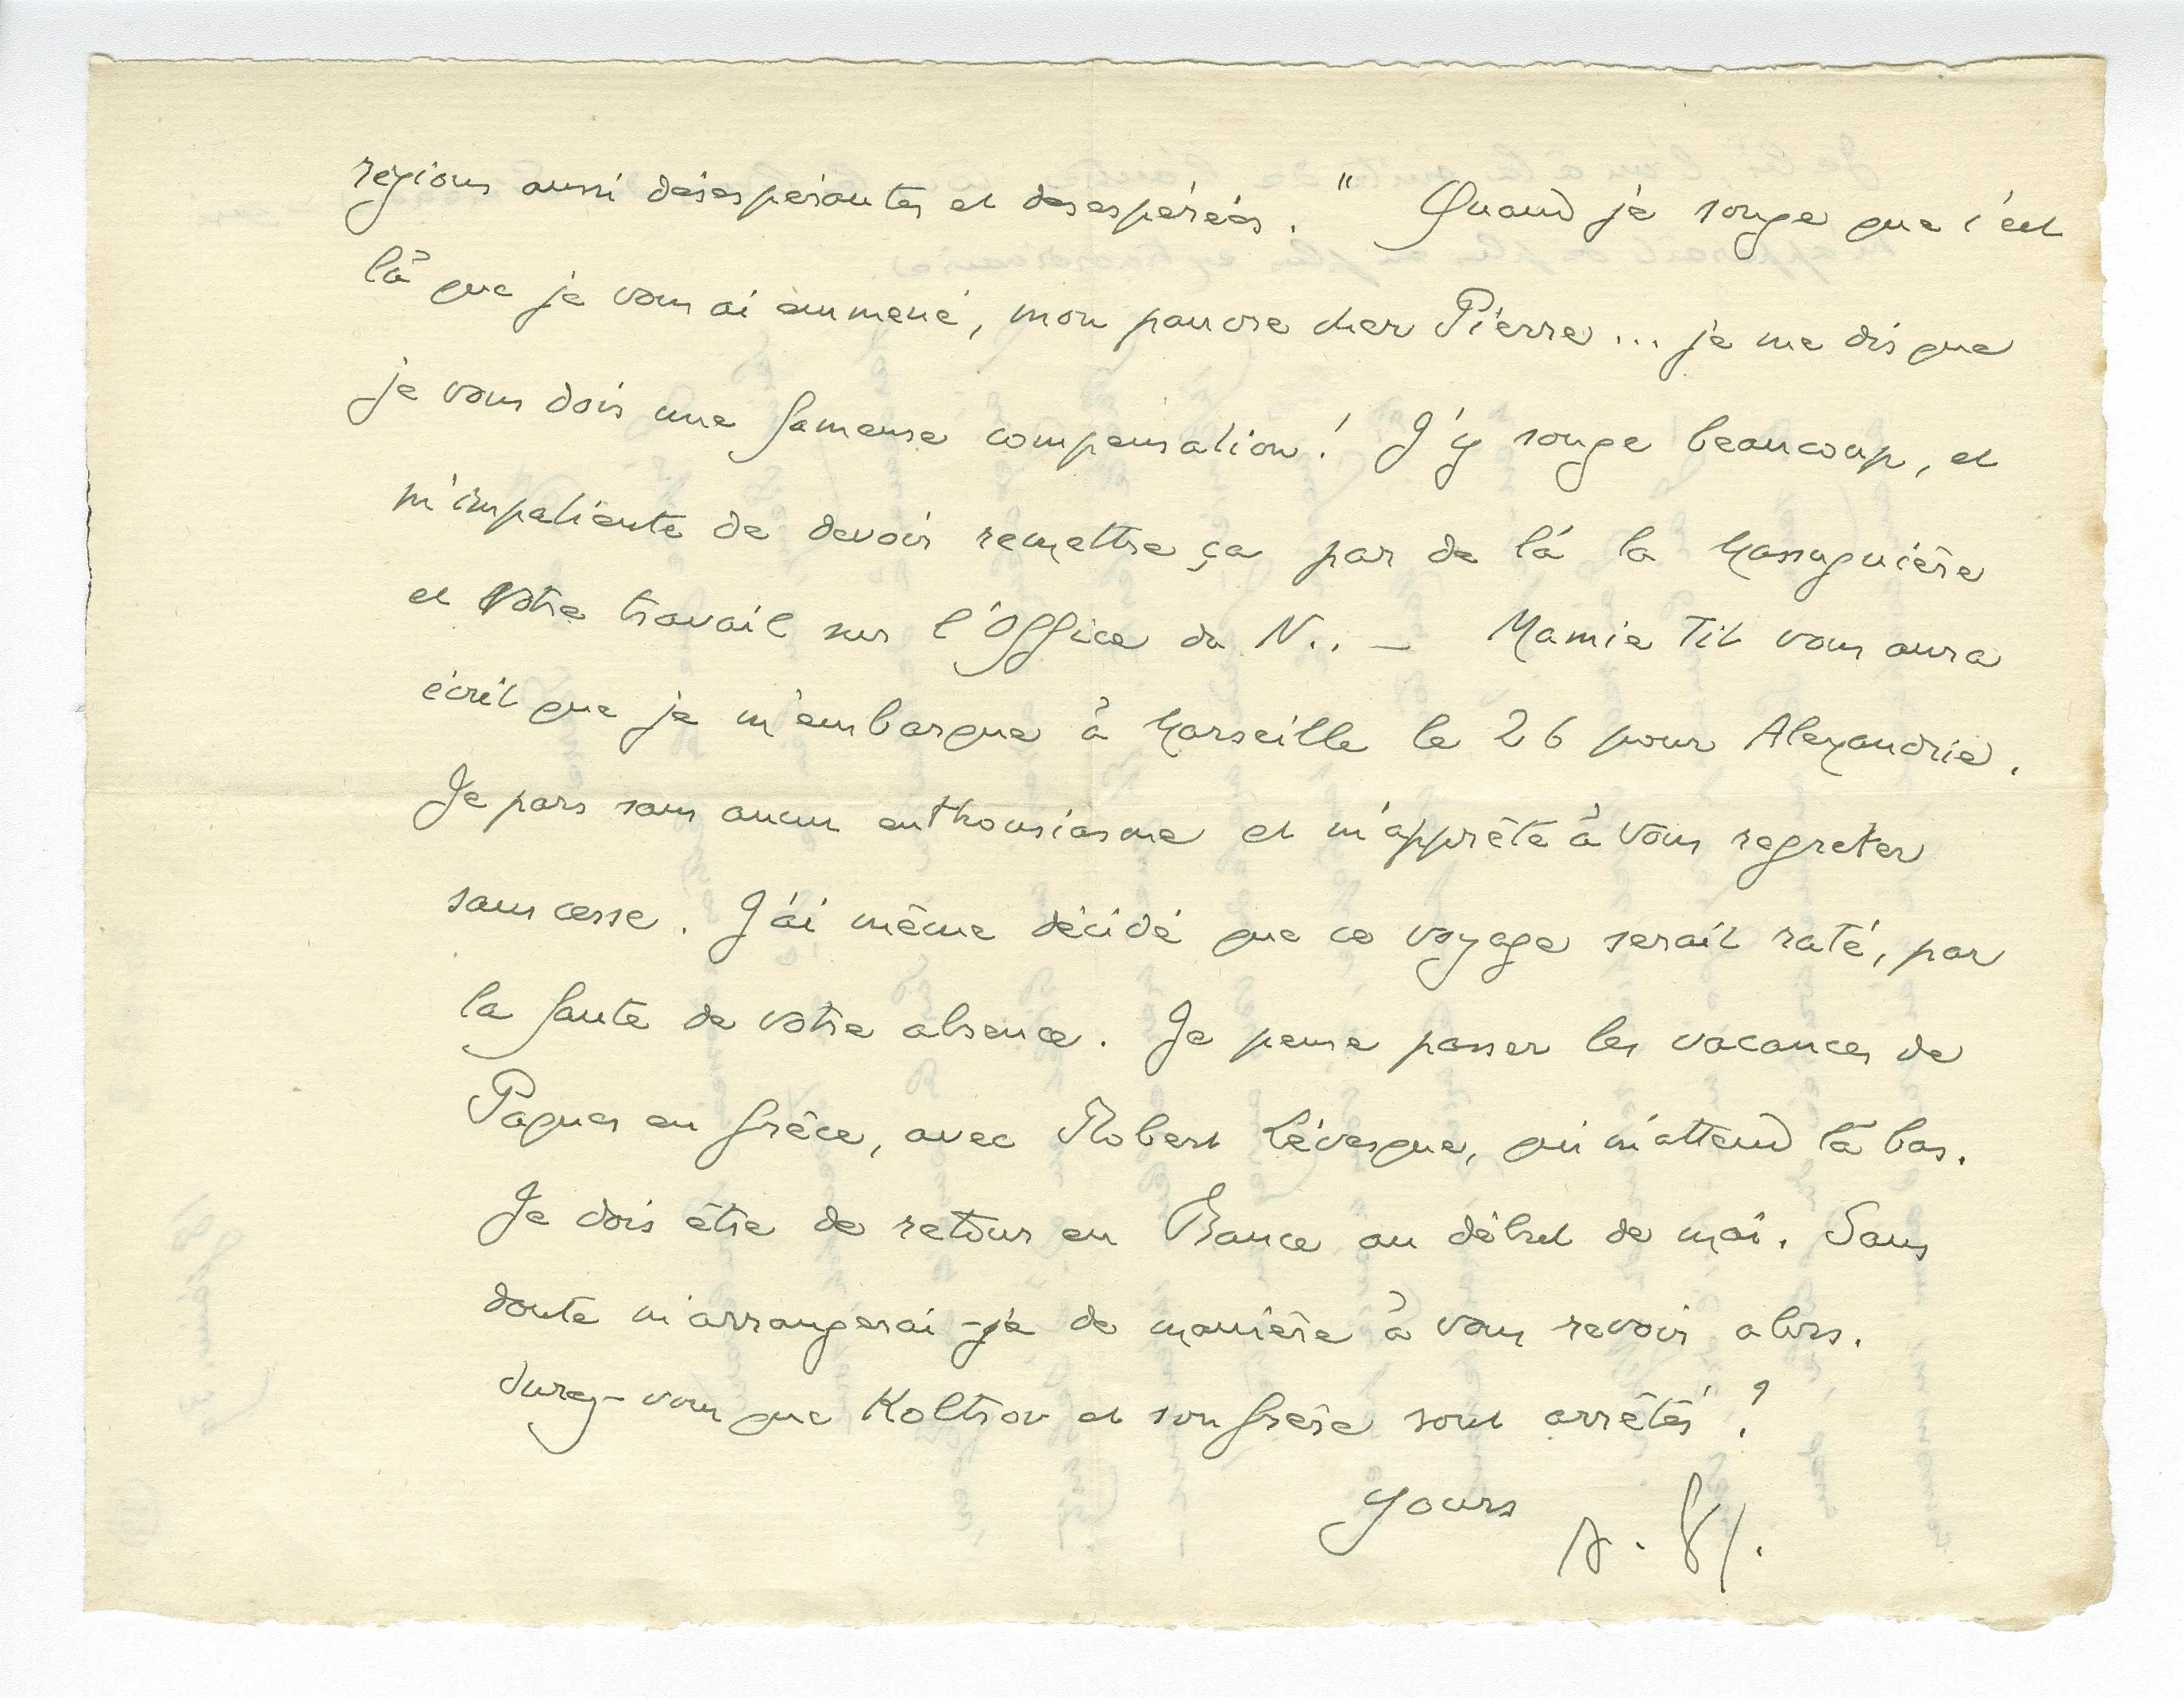 régions aussi désespérantes et désespérées. " Quand je songe que c'est
là que je vous ai emmené, mon pauvre cher Pierre ... je me dis que
je vous dois une fameuse compensation ! J'y songe beaucoup, et
m'impatiente de devoir remettre ça par de là la Messuguière
et votre travail sur l'Office du N.. — Mamie Tit vous aura
écrit que je m'embarque à Marseille le 26 pour Alexandrie.
Je pars sans aucun enthousiasme et m'apprête à vous regretter
sans cesse. J'ai même décidé que ce voyage serait raté, par
la faute de votre absence. Je pense passer les vacances de
Pâques en Grèce, avec Robert Lévesque, qui m'attend là bas.
Je dois être de retour en France au début de mai. Sans
doute m'arrangerai-je de manière à vous revoir alors.
-vous que Koltsov et son frère sont arrêtés ?
Yours A. G.